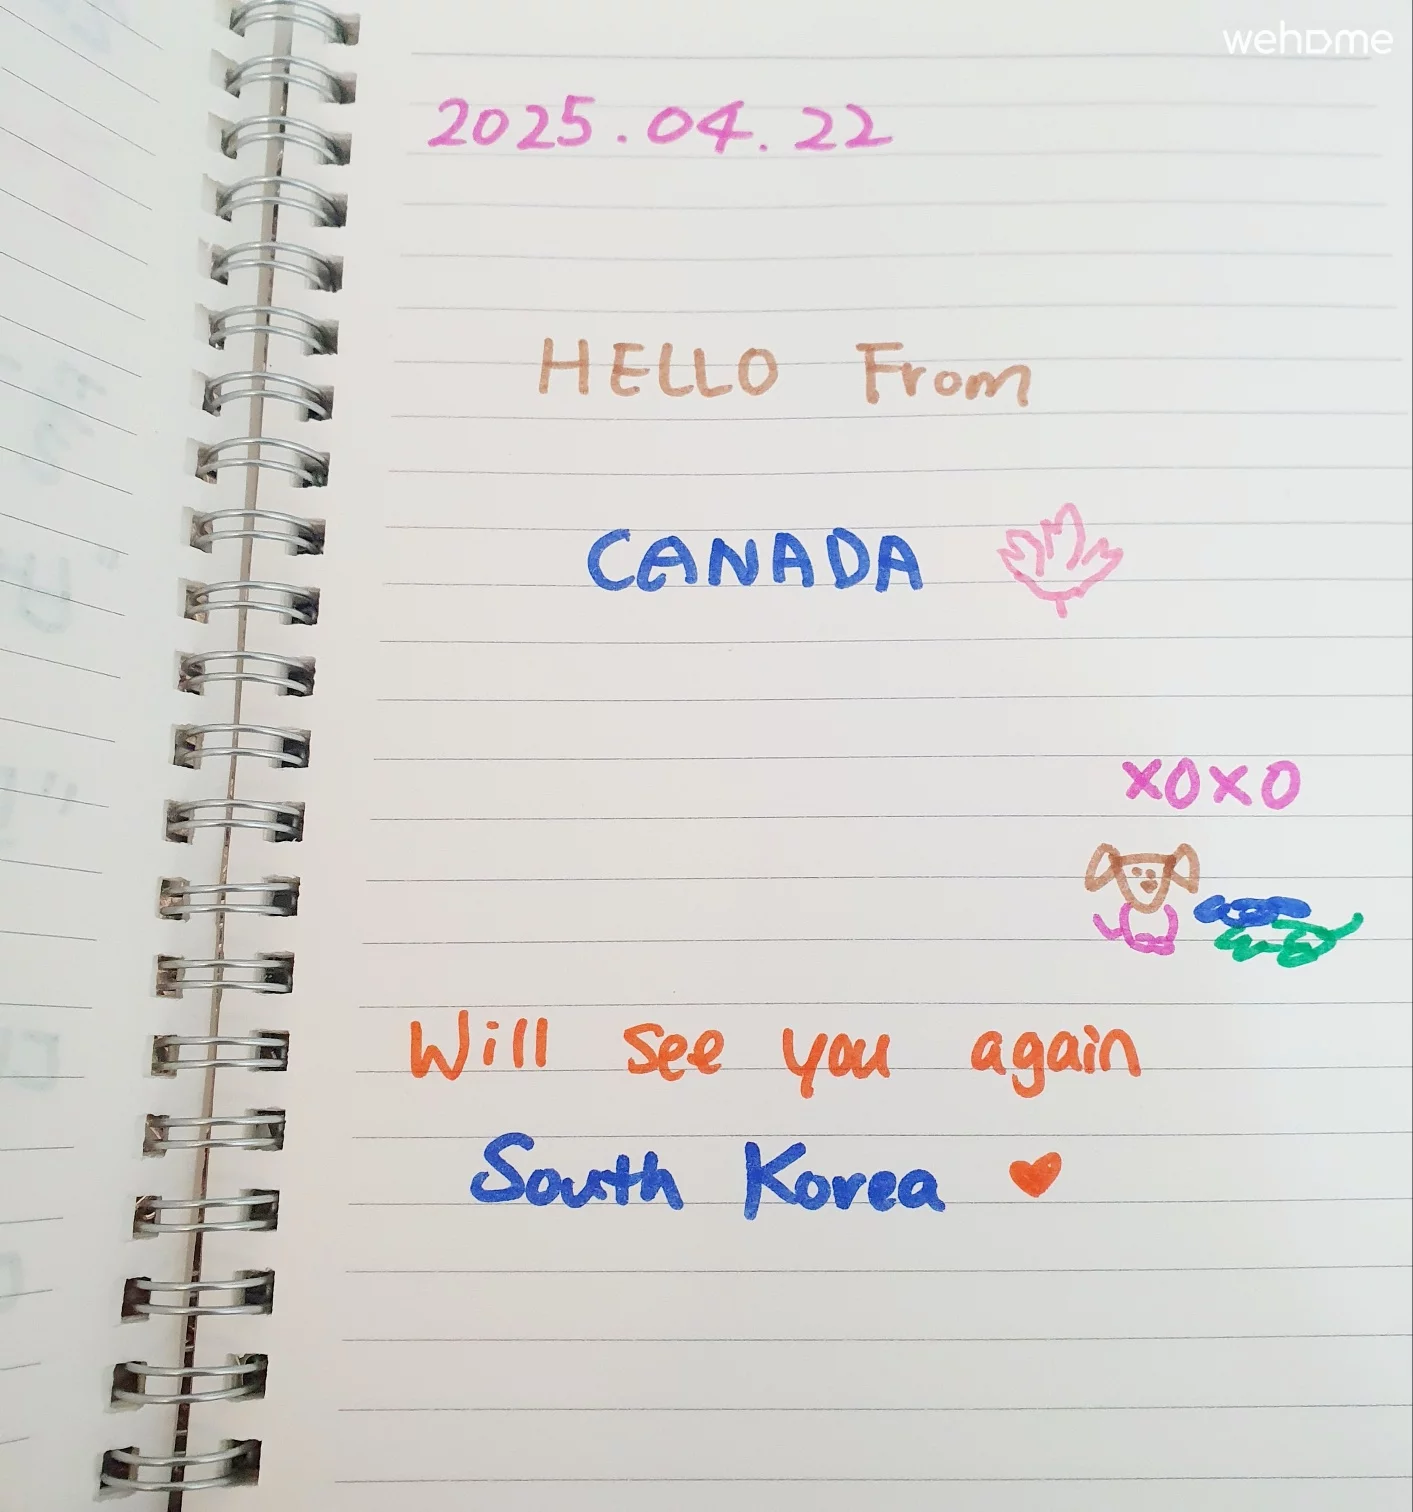 wehome
2025.04.22
HELLO From
CANADA
XOXO
Will see you again
South Korea